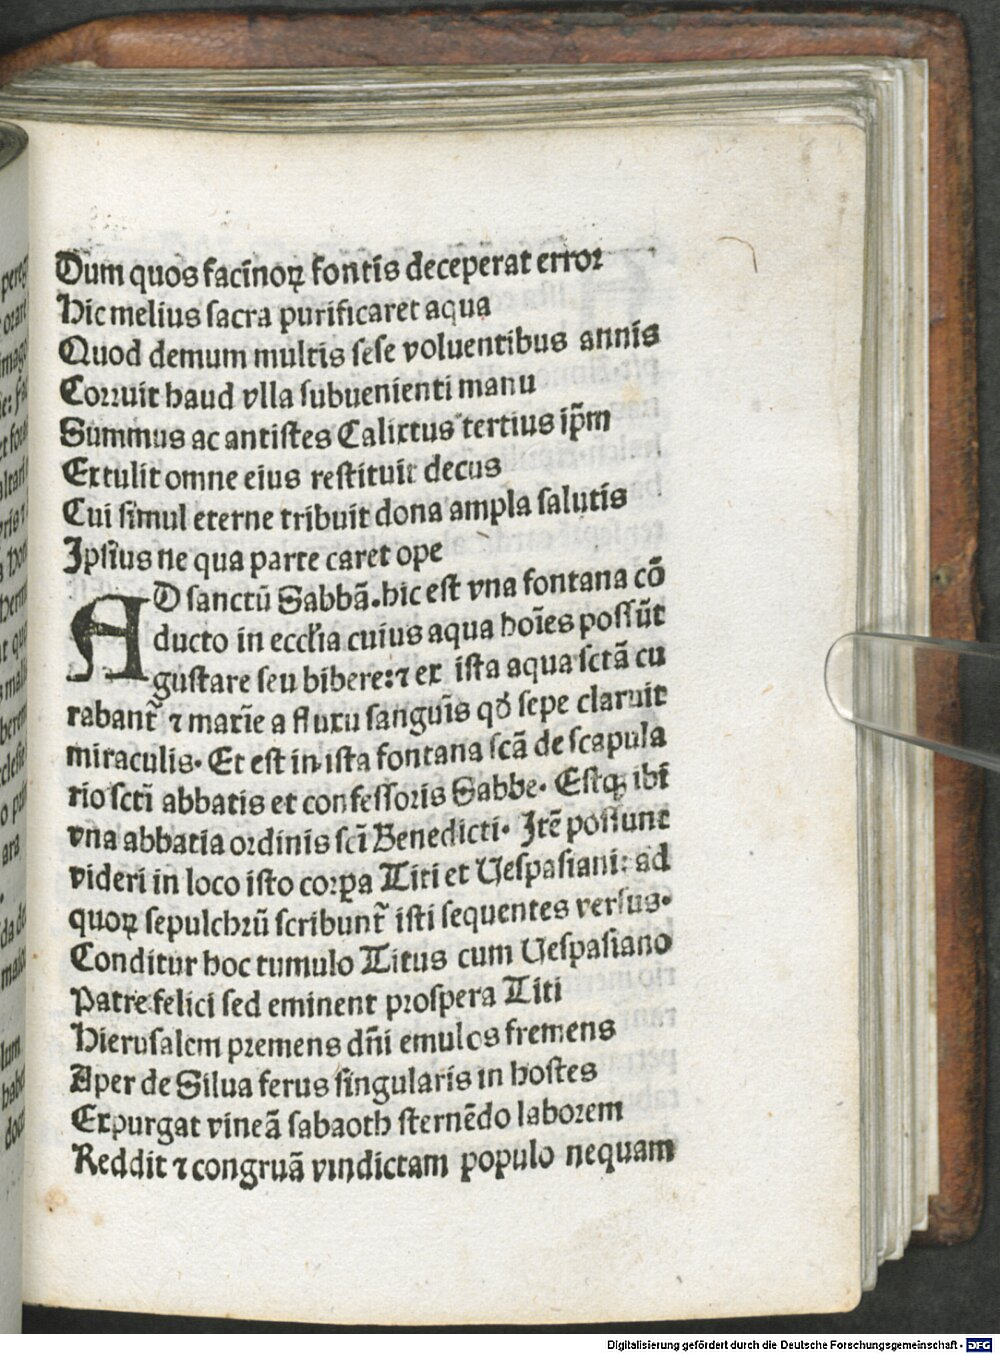 Dum quos facinoꝝ fontis deceperat error
Hic melius sacra purificaret aqua
Quod demum multis sese voluentibus annis
Corruit haud vlla subuenienti manu
Summus ac antistes Calixtus tertius ip̄m
Extulit omne eius restituit decus
Cui simul eterne tribuit dona ampla salutis
Ipsius ne qua parte caret ope
AD sanctū Sabbā. hic est vna fontana cō
ducto in eccl'ia cuius aqua hoīes possūt
gustare seu bibere: ⁊ ex ista aqua sctā cu
rabant᷑ ⁊ marīe a fluxu sanguīs qd̓ sepe claruit
miraculis. Et est in ista fontana scā de scapula
rio sctī abbatis et confessoris Sabbe. Estqꝫ ibi
vna abbatia ordinis scī Benedicti. Itē possunt
videri in loco isto corpa Titi et Vespasiani: ad
quoꝝ sepulchrū scribunt᷑ isti sequentes versus.
Conditur hoc tumulo Titus cum Vespasiano
Patre felici sed eminent prospera Titi
Hierusalem premens dn̄i emulos fremens
Aper de Silua ferus singularis in hostes
Expurgat vineā sabaoth sternēdo laborem
Reddit ⁊ congruā vindictam populo nequam
Digitalisierung gefördert durch die Deutsche Forschungsgemeinschaft - DFG